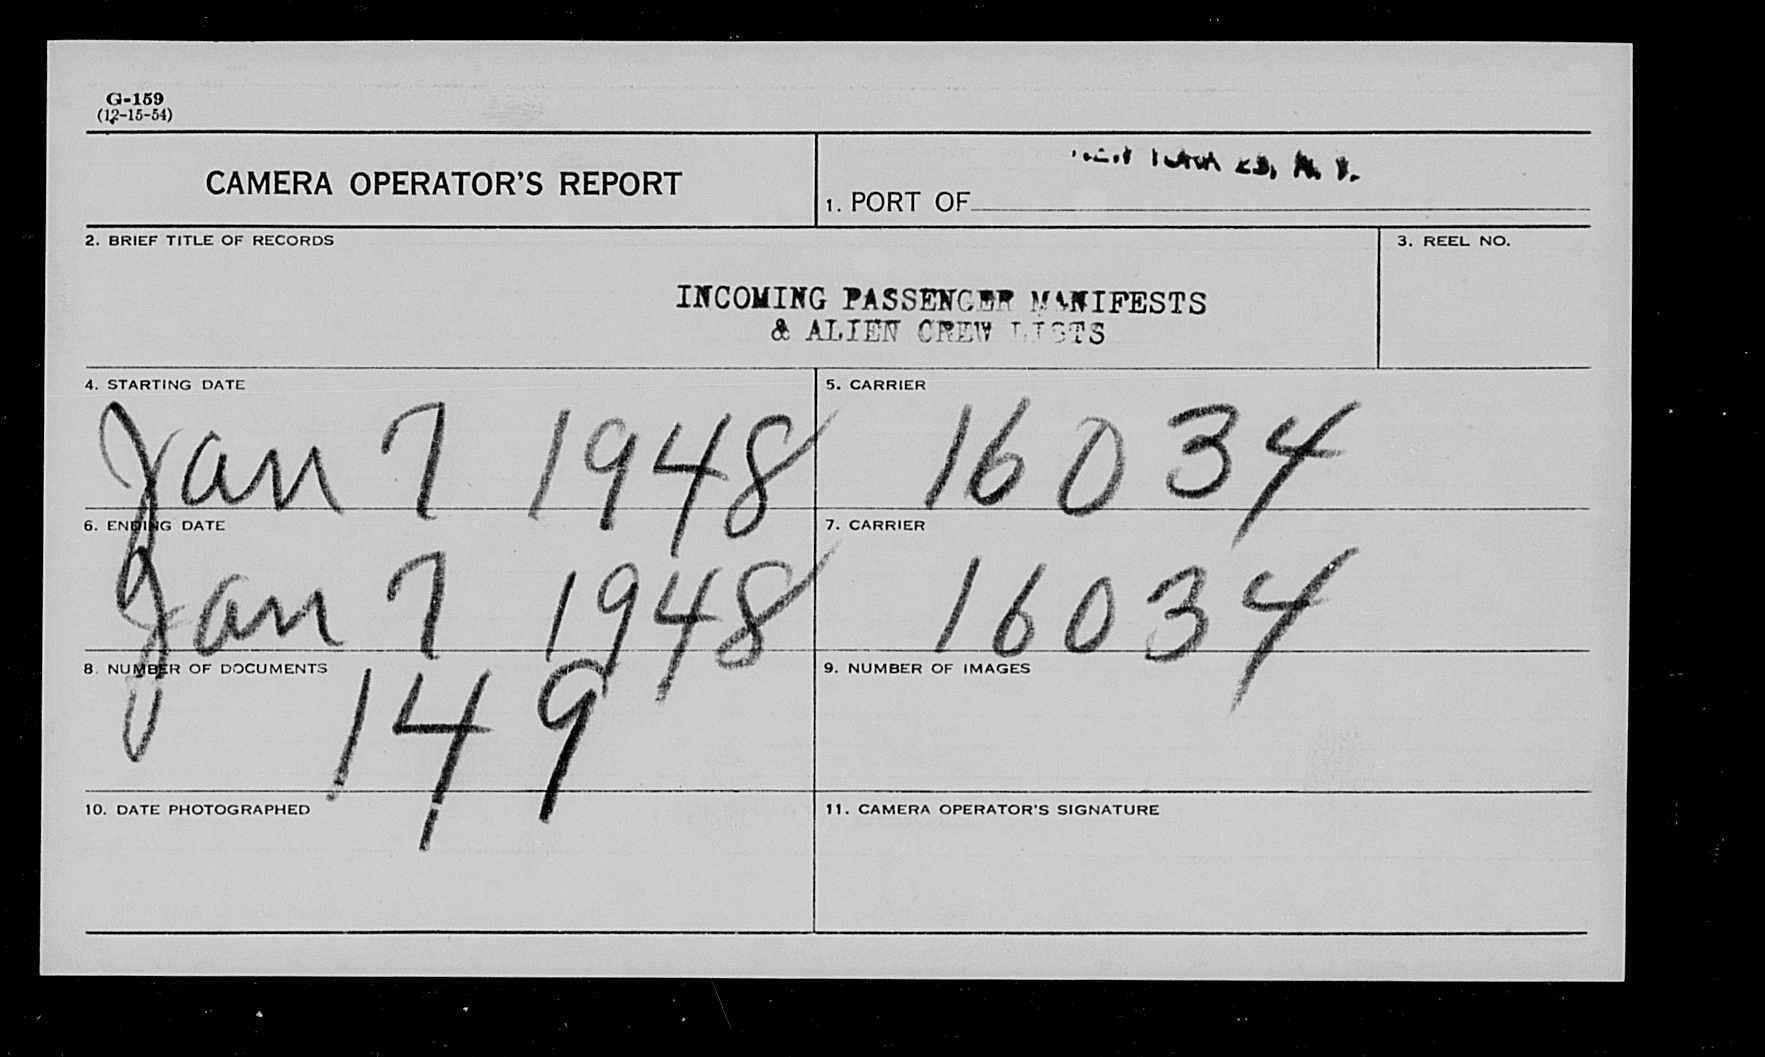 G-159
(12-15-54)
CAMERA OPERATOR'S REPORT
1. PORT OF
N. Y.
2. BRIEF TITLE OF RECORDS
3. REEL NO.
INCOMING PASSENGER MANIFESTS
& ALIEN CREW LISTS
4. STARTING DATE
5. CARRIER
Jan 7 1948
16034
6. ENDING DATE
7. CARRIER
Jan 7 1948
16034
8. NUMBER OF DOCUMENTS
9. NUMBER OF IMAGES
149
10. DATE PHOTOGRAPHED
11. CAMERA OPERATOR'S SIGNATURE